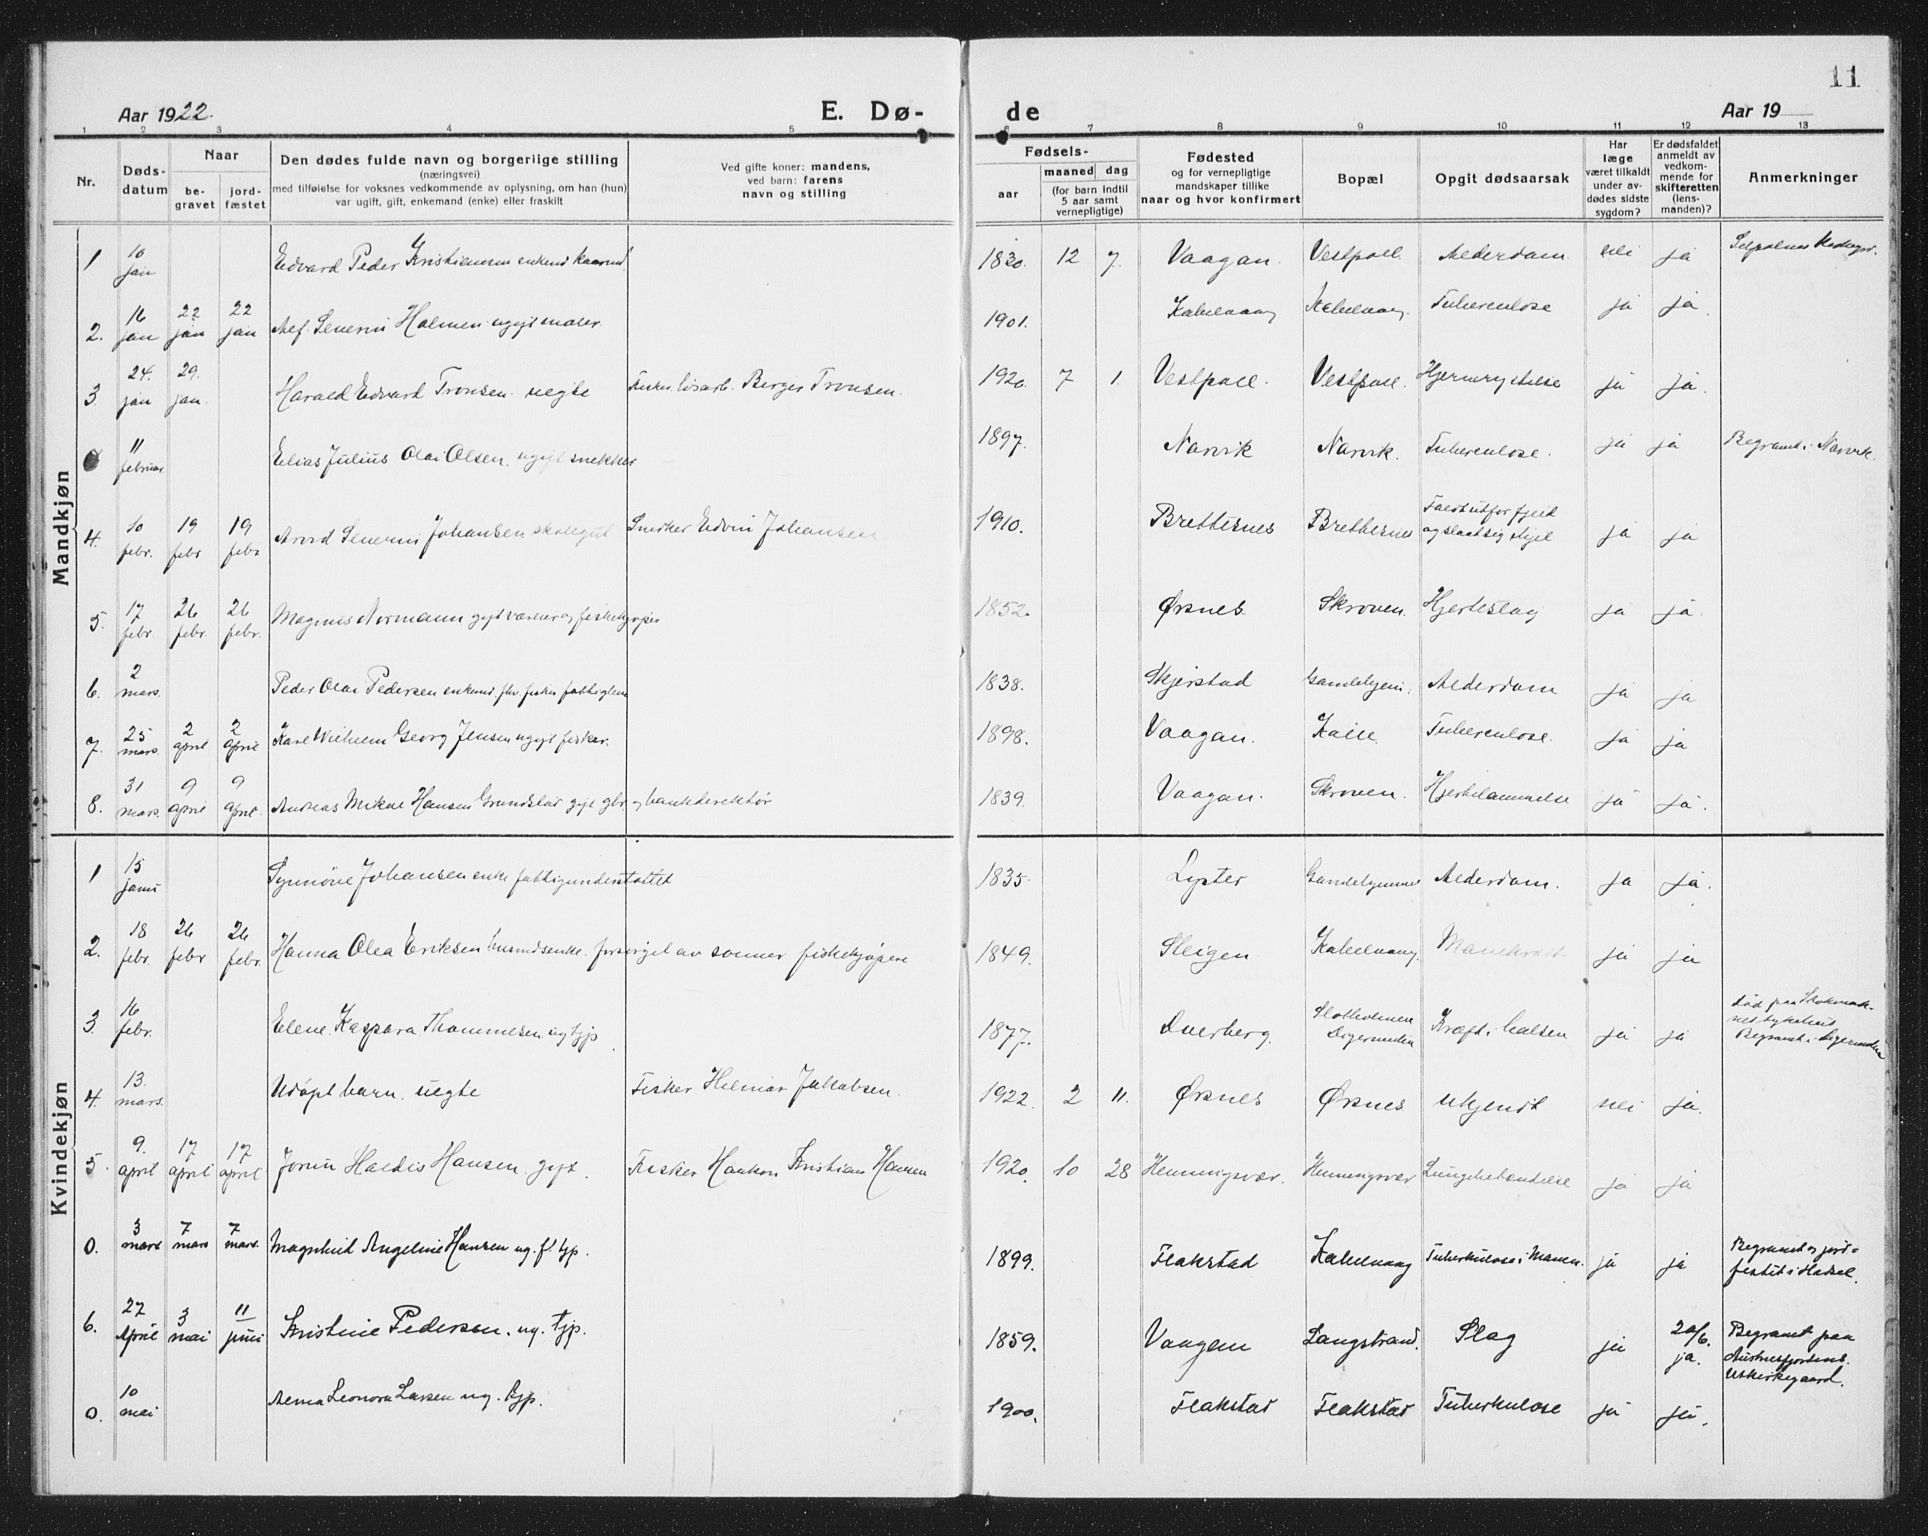 11
Aar 1922. E. Dø- de Aar 19
1 2 3 4 5 6 7 8 9 10 11 12 13
Nr. Døds-datum Naar be-gravet jord-fæstet
Den dødes fulde navn og borgerlige stilling
(næringsvei)
med tilføielse for voksnes vedkommende av oplysning, om han (hun)
var ugift, gift, enkemand (enke) eller fraskilt
Ved gifte koner: mandens,
ved barn: farens
navn og stilling
Fødsels-
aar maaned dag
(for barn indtil
5 aar samt
vernepligtige)
Fødested
og for vernepligtige
mandskaper tillike
naar og hvor konfirmert
Bopæl
Opgit dødsaarsak
Har
læge
været tilkaldt
under av-
dødes sidste
sygdom?
Er dødsfaldet
anmeldt av
vedkom-
mende for
skifteretten
(lens-
manden)?
Anmerkninger
Mandkjøn
1 10 jan Edvard Peder Kristiansen enkemd. kaarmd. 1830. 12 7. Vaagan. Vestpoll. Alderdom nei ja
2. 16 jan 22 jan 22 jan Alf Severin Holmen ugift maler 1901. Kabelvaag Kabelvaag. Tuberculose ja ja.
3. 24. jan 29. jan. Harald Edvard Tronsen. uegte Fisker løsarb. Berger Tronsen. 1920. 7 1. Vestpoll. Vestpoll. Hjernerystelse ja ja.
0 11 februar Elias Julius Olai Olsen. ugift snekker 1897. Narvik Narvik. Tuberculose. ja ja Begravet i Narvik.
4. 10 febr. 19 febr 19 febr Arvid Severin Johansen skolegut Snedker Edvin Johansen 1910. Brettesnes Brettesnes Faldt utfor fjeld
og slaat sig ihjel ja ja
5. 17 febr. 26 febr. 26 febr. Magnus Normann gift væreier og fiskekjøper 1852. Ørsnes Skroven. Hjerteslag ja ja.
6. 2 mars. Peder Olai Pedersen enkemd. fhv. fisker fattiglem 1838. Skjerstad Gamlehjem. Alderdom ja ja
7. 25 mars. 2 april 2 april Karl Wilhelm Georg Jensen ugift fisker. 1898. Vaagan. Kalle Tuberculose. ja ja
8. 31 mars. 9 april 9 april. Andreas Mikal Hansen Grundstad gift gbr. og bankdirektør 1839. Vaagan. Skroven. Hjertelammelse ja ja.
Kvindekjøn
1 15 Synnøve Johansen enke fattigunderstøttet 1835. Lyster Gamlehjemmet Alderdom. ja ja.
2. 18 febr. 26 febr 26 febr. Hanna Olea Eriksen husmdsenke. forsørget av sønner fiskekjøpere 1849. Steigen Kabelvaag. Mavekræft ja ja
3. 16 febr. Elene Kaspara Thommesen ug tjp 1877. Dverberg. Slotholmen
Digermulen Kræft i halsen ja ja død paa Stokmark-
nes sykehus
Begravet i Digermulen
4. 13. mars. Udøpt barn. uegte Fisker Hilmar Jakobsen. 1922. 2 11. Ørsnes Ørsnes ukjendt nei ja.
5. 9. april 17 april 17 april Jorun Haldis Hansen. Fisker Haakon Kristian Hansen 1920. 10 28 Henningsvær. Henningsvær Lungebetændelse ja ja
0. 3 mars 7 mars 7 mars. Magnhild Angeline Hansen ug. f. tjp. 1899. Flakstad Kabelvaag Tuberkulose i Maven. ja ja Begravet og jord-
festet i Hadsel.
6. 27 April 3 mai 11 juni Kristine Pedersen. ug. tjp. 1859. Vaagan Langstrand. Slag ja 20/6. ja. Begravet paa
Austnesfjordens
Utkirkegaard.
0. 10 mai Alma Leonora Larsen ug. tjp. 1900. Flakstad Flakstad Tuberkulose ja ja.